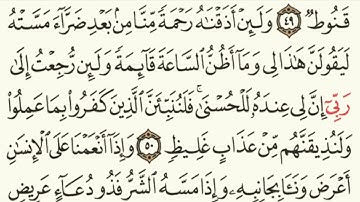 قَنُوطٌ ٤٩ وَلَئِنْ أَذَقْنَٰهُ رَحْمَةً مِّنَّا مِنۢ بَعْدِ ضَرَّآءَ مَسَّتْهُ
لَيَقُولَنَّ هَٰذَا لِى وَمَآ أَظُنُّ ٱلسَّاعَةَ قَآئِمَةً وَلَئِن رُّجِعْتُ إِلَىٰ
رَبِّىٓ إِنَّ لِى عِندَهُۥ لَلْحُسْنَىٰ ۚ فَلَنُنَبِّئَنَّ ٱلَّذِينَ كَفَرُوا۟ بِمَا عَمِلُوا۟
وَلَنُذِيقَنَّهُم مِّنْ عَذَابٍ غَلِيظٍ ٥٠ وَإِذَآ أَنْعَمْنَا عَلَى ٱلْإِنسَٰنِ
أَعْرَضَ وَنَـَٔا بِجَانِبِهِۦ وَإِذَا مَسَّهُ ٱلشَّرُّ فَذُو دُعَآءٍ عَرِيضٍ